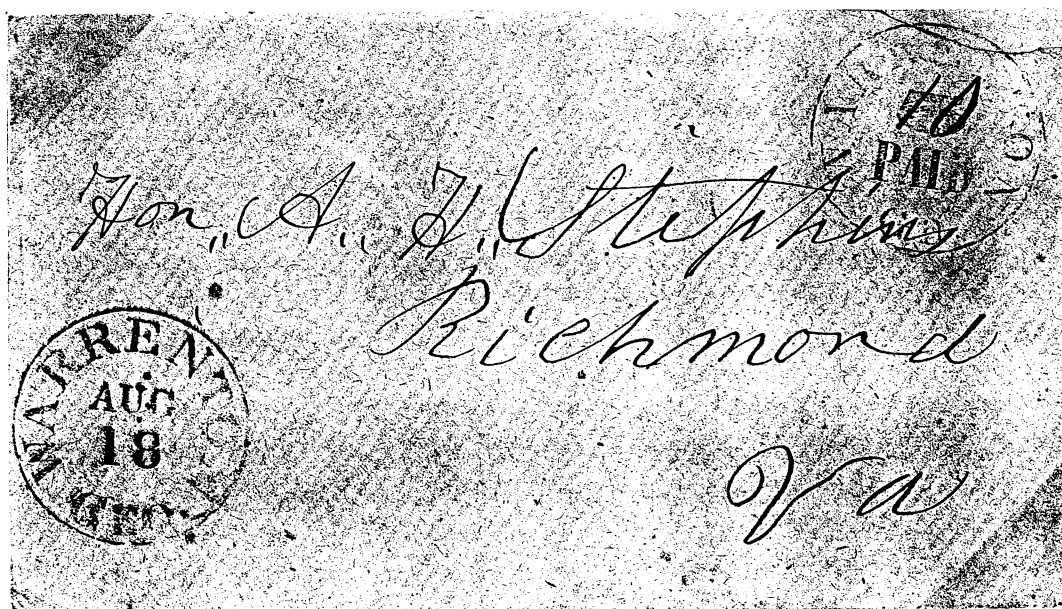 10
PAID
Hon,, A,, H,, Stephens
Richmond
Va
WARRENTON
AUG
18
GEO.